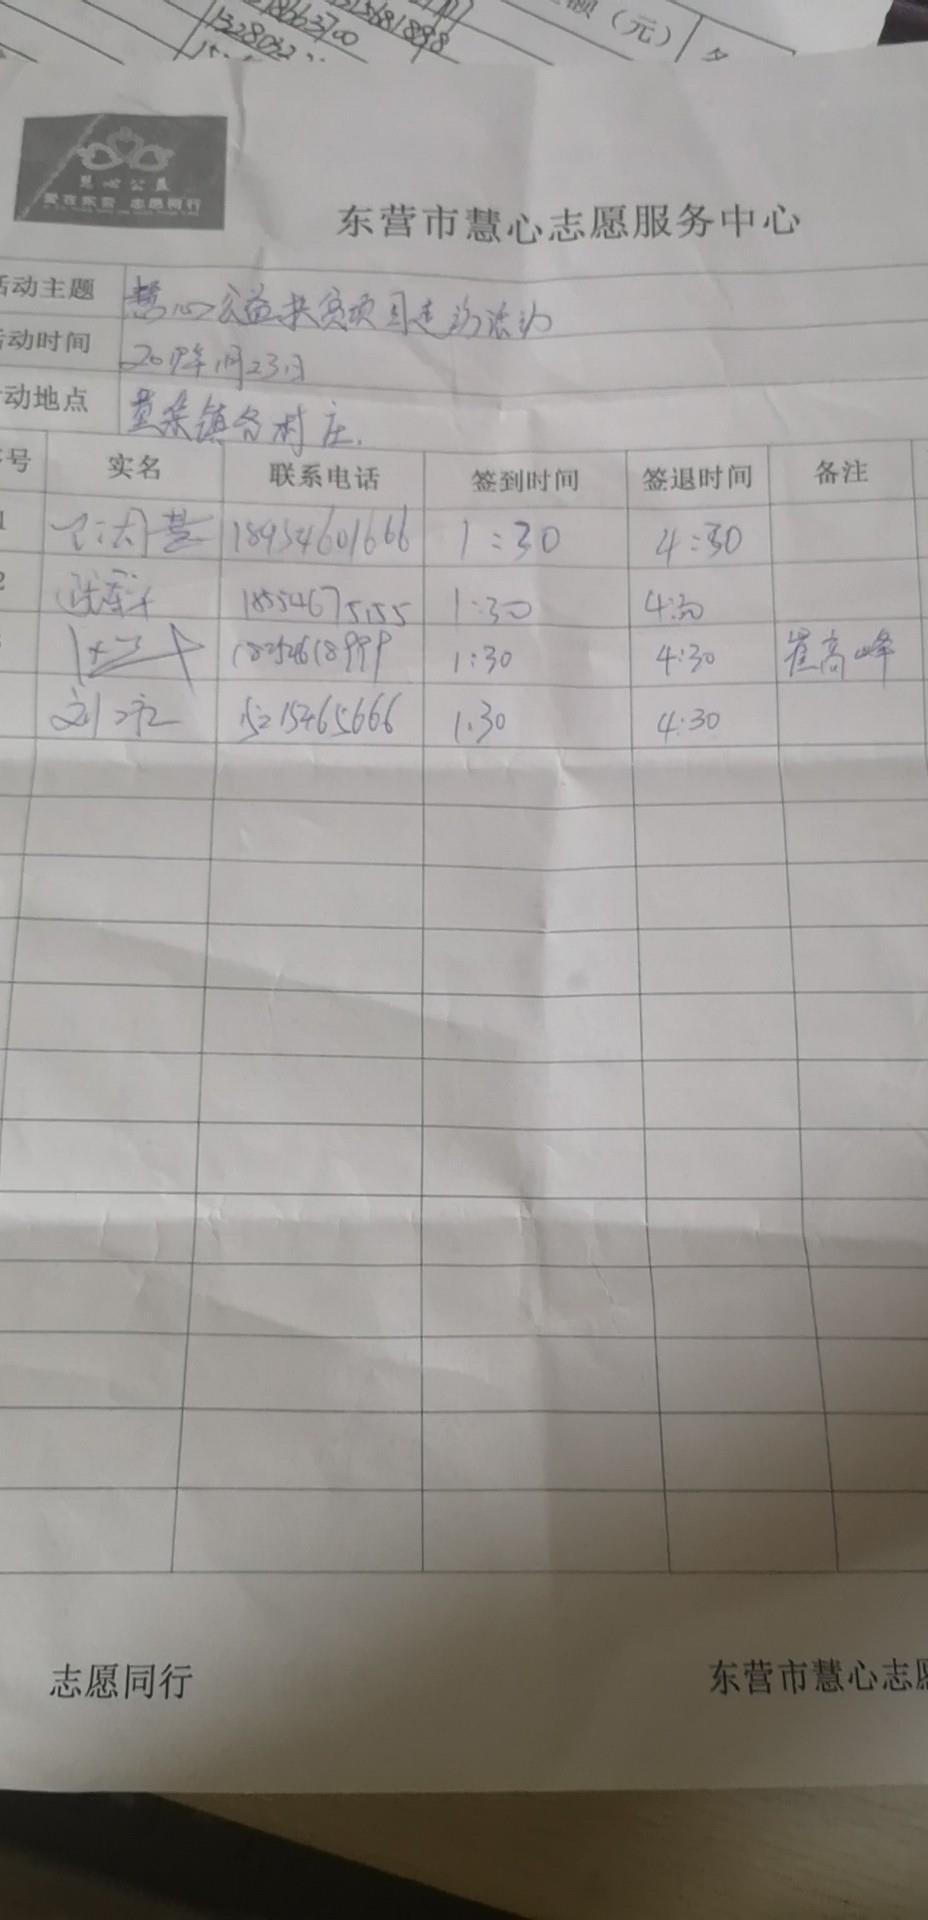 18663700
15681898
额（元）
慧心公益
爱在东营 志愿同行
东营市慧心志愿服务中心
活动主题 慧心公益扶贫项目走访活动
动时间 2019年1月23日
动地点 黄渠镇各村庄.
号 实名 联系电话 签到时间 签退时间 备注
1 18954601666 1:30 4:30
2 18554675155 1:30 4:30
18254618999 1:30 4:30 崔高峰
刘 15215465666 1:30 4:30
志愿同行 东营市慧心志愿